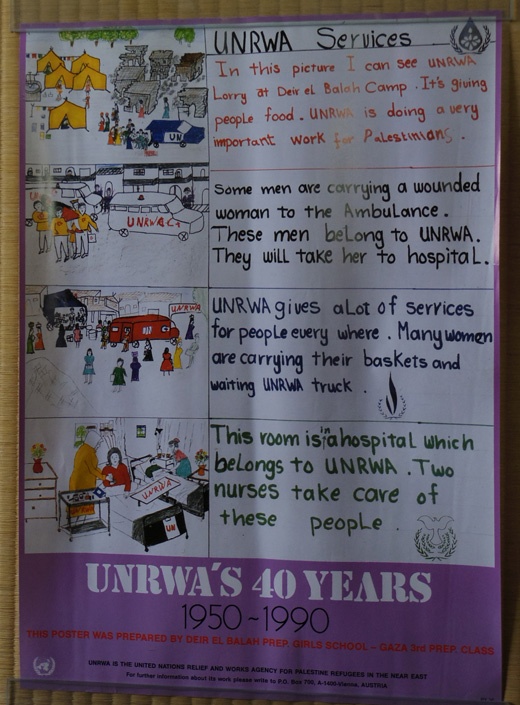 UNRWA Services
In this picture I can see UNRWA
Lorry at Deir el Balah Camp. It's giving
people food. UNRWA is doing a very
important work for Palestinians.
UN
Some men are carrying a wounded
woman to the Ambulance.
These men belong to UNRWA.
They will take her to hospital.
UNRWA
UNRWA gives a Lot of services
for people every where. Many women
are carrying their baskets and
waiting UNRWA truck.
UNRWA
UN
This room is in a hospital which
belongs to UNRWA. Two
nurses take care of
these people.
UNRWA
UN
UNRWA'S 40 YEARS
1950~1990
THIS POSTER WAS PREPARED BY DEIR EL BALAH PREP. GIRLS SCHOOL – GAZA 3rd PREP. CLASS
UNRWA IS THE UNITED NATIONS RELIEF AND WORKS AGENCY FOR PALESTINE REFUGEES IN THE NEAR EAST
For further information about its work please write to P.O. Box 700, A-1400 Vienna, AUSTRIA